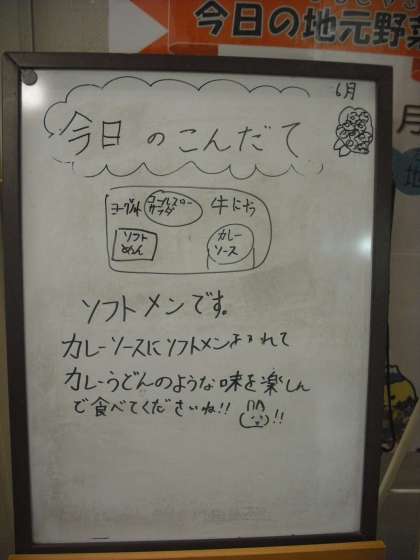 今日の地元野菜
6月
今日のこんだて
ヨーグルト コールスローサラダ 牛にゅう
ソフトめん カレーソース
ソフトメンです。
カレーソースにソフトメンを入れて
カレーうどんのような味を楽しん
で食べてくださいね!! !!
月
地